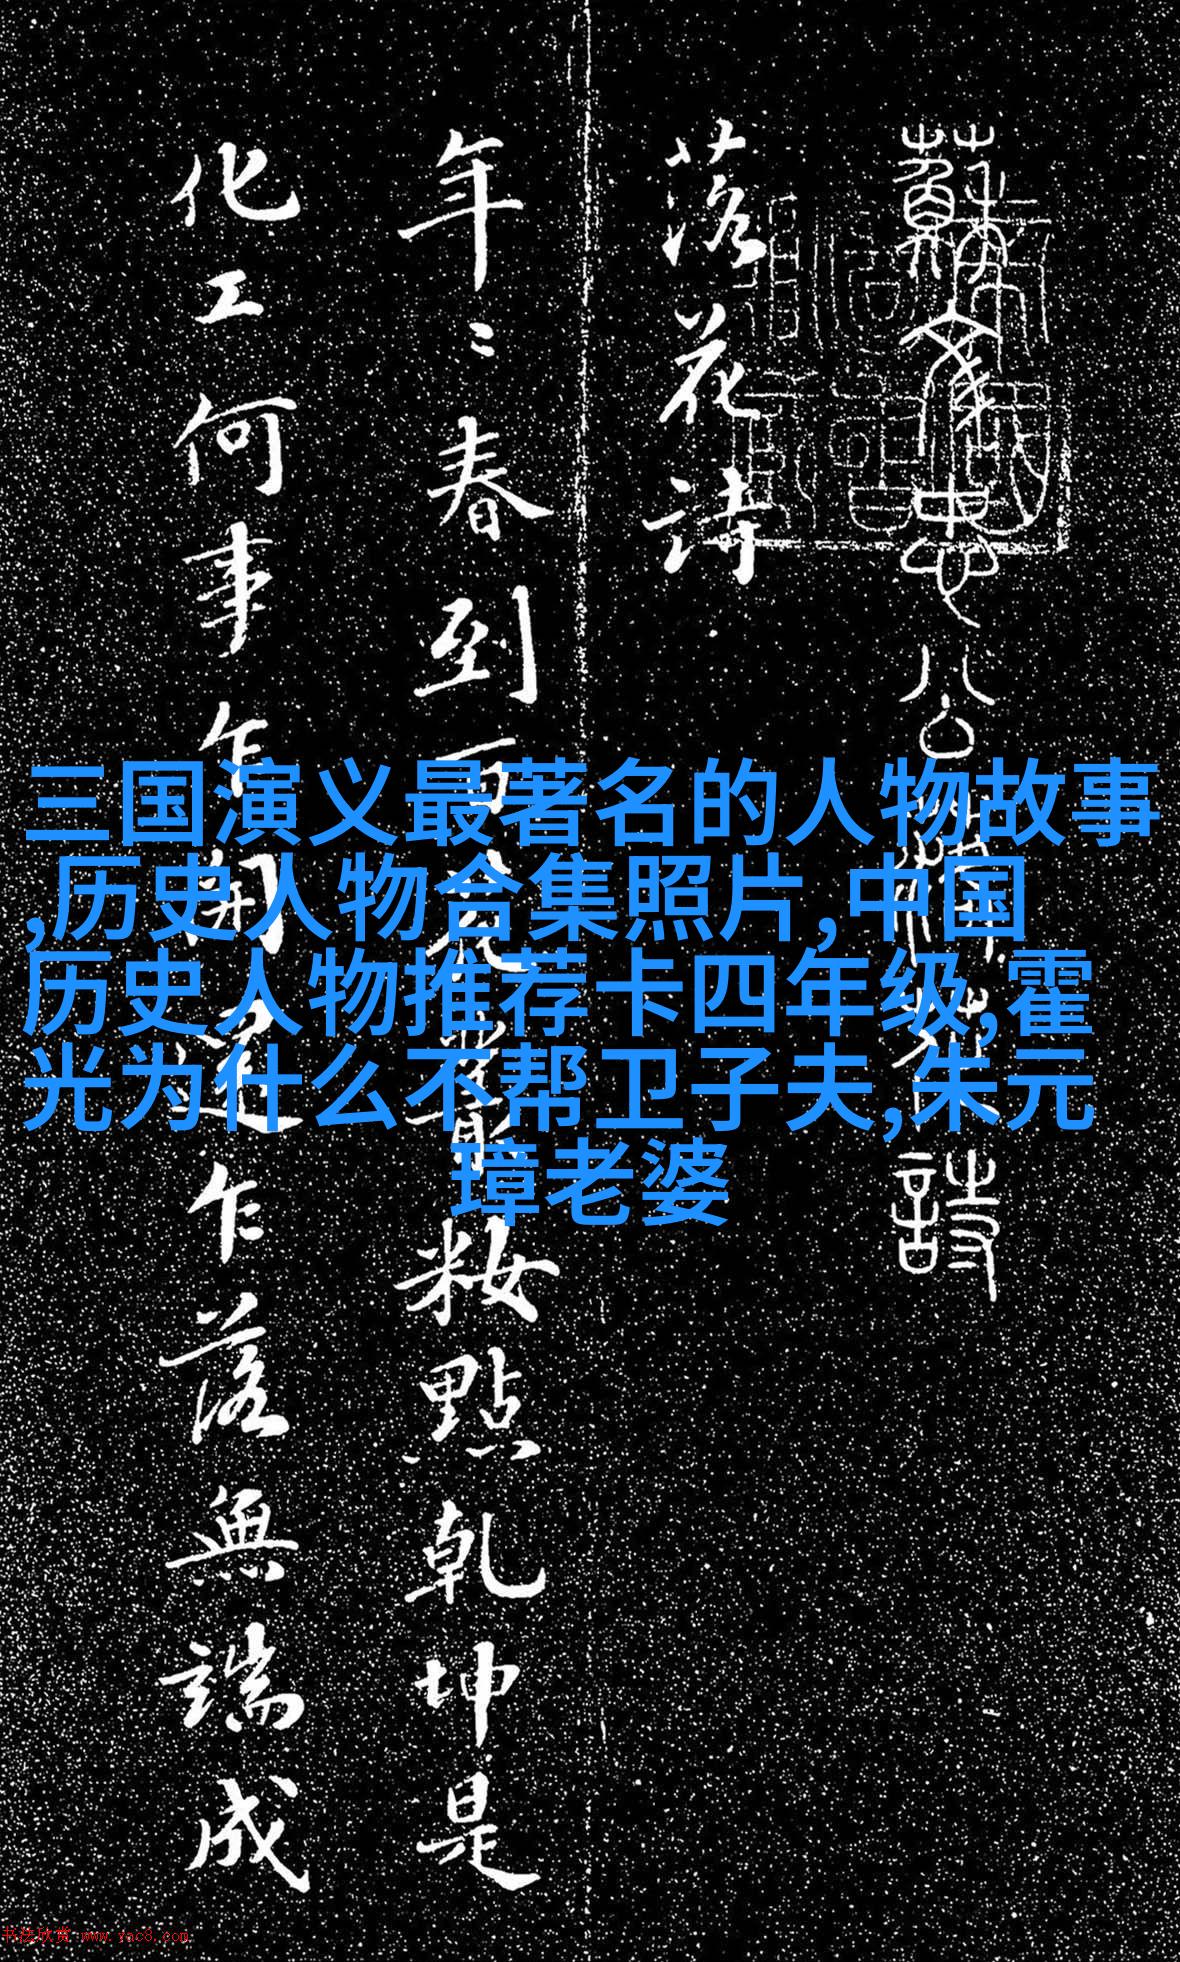 蘇文忠公落花詩
落花詩
年〻春到百花叢粧點乾坤是
化工何事乍開還乍落無端成
三国演义最著名的人物故事
,历史人物合集照片,中国
历史人物推荐卡四年级,霍
光为什么不帮卫子夫,朱元
璋老婆
书法欣赏 www.yac8.com